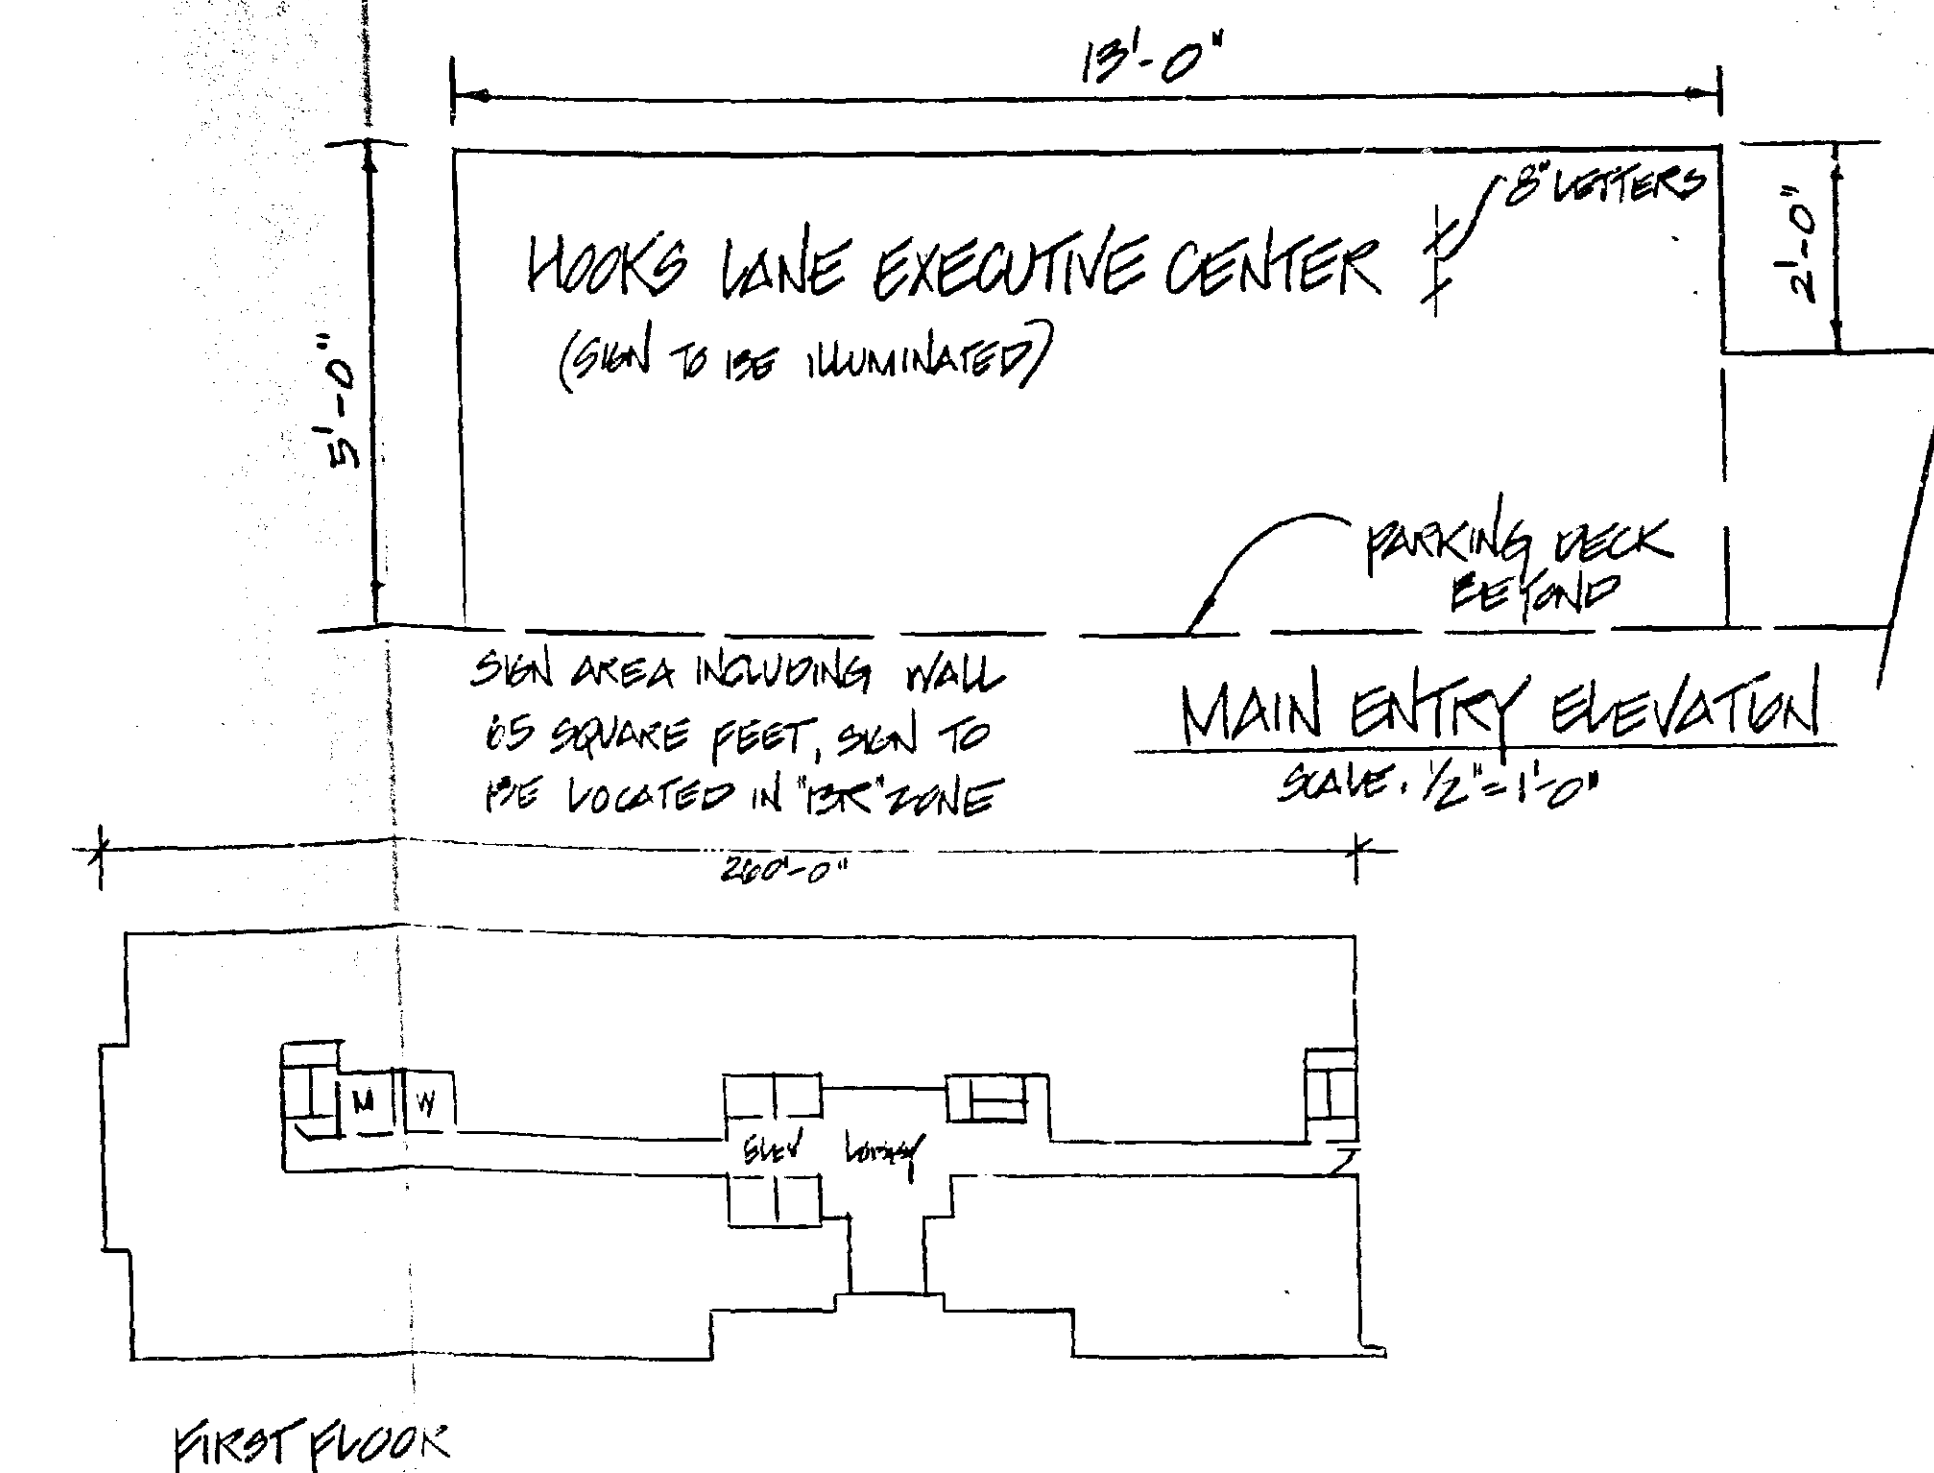 13'-0"
8" LETTERS
2'-0"
HOOKS LANE EXECUTIVE CENTER
(SIGN TO BE ILLUMINATED)
5'-0"
PARKING DECK
BEYOND
SIGN AREA INCLUDING WALL
65 SQUARE FEET, SIGN TO
BE LOCATED IN "BR" ZONE
MAIN ENTRY ELEVATION
SCALE. 1/2"=1'-0"
260'-0"
M W
ELEV LOBBY
FIRST FLOOR